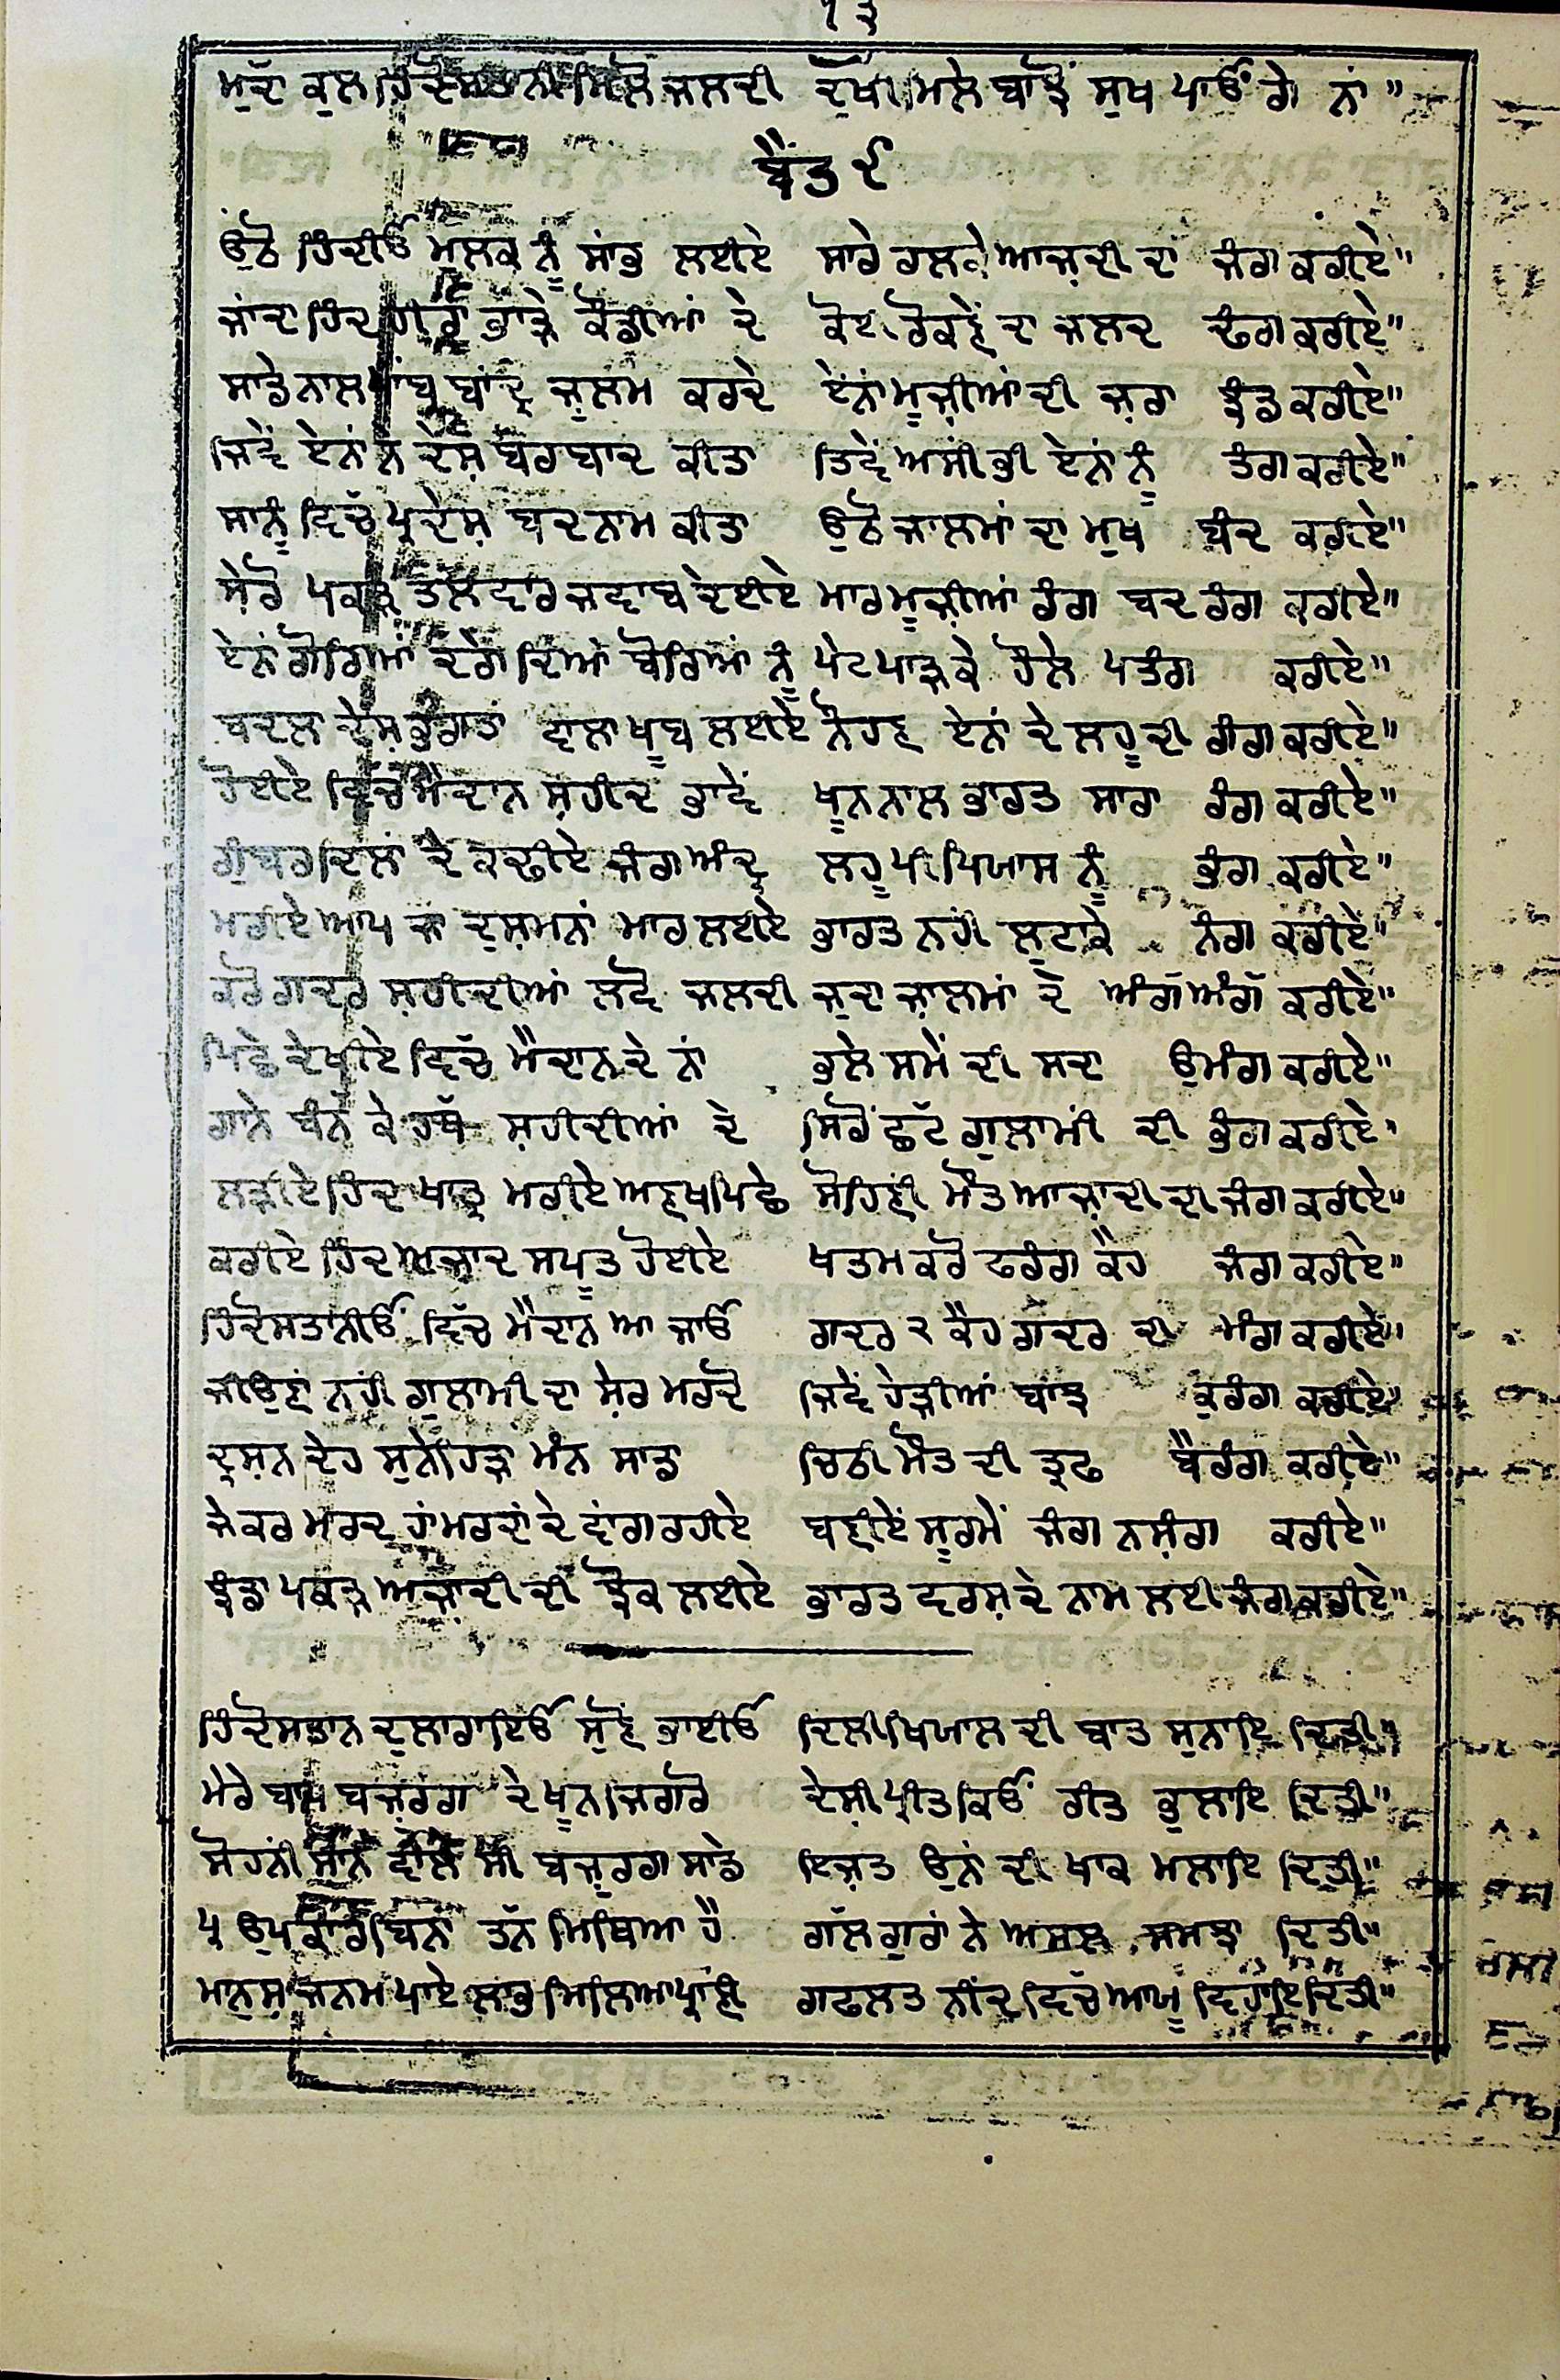 ੧੩
ਮੁਦਾਂ ਕੁਲ ਮਿਲੋ ਜਲਦੀ ਦੁਖੀ ਮਿਲੇ ਬਾਝੋਂ ਸੁਖ ਪਾਓਂ ਗੇ ਨਾਂ"
ਬੈਂਤ ੯
ਉਠੋ ਹਿੰਦੀਓ ਮੁਲਕ ਨੂੰ ਸਾਂਭ ਲਈਏ ਸਾਰੇ ਰਲਕੇ ਆਜ਼ਦੀ ਦਾ ਜੰਗ ਕਰੀਏ"
ਜਾਂਦਾ ਹਿੰਦ ਭਾੜੇ ਕੌਡੀਆਂ ਦੇ ਕੋਈ ਰੋਕਣੇਂ ਦਾ ਜਲਦ ਢੰਗ ਕਰੀਏ"
ਸਾਡੇ ਨਾਲ ਬਾਂਦ੍ਰ ਜ਼ੁਲਮ ਕਰਦੇ ਏਂਨਾਂ ਮੂਜ਼ੀਆਂ ਦੀ ਜ਼ਰਾ ਝੰਡ ਕਰੀਏ"
ਜਿਵੇਂ ਏਨਾਂ ਨੇ ਦੇਸ਼ ਬਰਬਾਦ ਕੀਤਾ ਤਿਵੇਂ ਅਸੀਂ ਭੀ ਏਨਾਂ ਨੂੰ ਤੰਗ ਕਰੀਏ"
ਸਾਨੂੰ ਵਿਚੱ ਪ੍ਰਦੇਸ਼ ਬਦਨਾਮ ਕੀਤਾ ਉਠੋ ਜਾਲਮਾਂ ਦਾ ਮੁਖ ਬੰਦ ਕਰੀਏ"
ਸ਼ੇਰੋ ਪਕੜ ਤਲਵਾਰ ਜਵਾਬ ਦੇਈਏ ਮਾਰ ਮੂਜ਼ੀਆਂ ਰੰਗ ਬਦਰੰਗ ਕਰੀਏ"
ਏਨਾਂ ਗੋਰਿਆਂ ਦਗੇ ਦਿਆਂ ਬੋਰਿਆਂ ਨੂੰ ਪੇਟ ਪਾੜਕੇ ਹੌਲੇ ਪਤੰਗ ਕਰੀਏ"
ਬਦਲਾ ਦੇਸ਼ ਭਗਤਾਂ ਵਾਲਾ ਖੂਬ ਲਈਏ ਨੌਹਣ ਏਨਾਂ ਦੇ ਲਹੂ ਦੀ ਗੰਗ ਕਰੀਏ"
ਹੋਈਏ ਵਿਚੱ ਮੈਦਾਨ ਸ਼ਹੀਦ ਭਾਵੇਂ ਖੂਨ ਨਾਲ ਭਾਰਤ ਸਾਰਾ ਰੰਗ ਕਰੀਏ"
ਗੁਬਾਰ ਦਿਲਾਂ ਦੇ ਕਢੀਏ ਜੰਗ ਅੰਦ੍ਰ ਲਹੂ ਪੀ ਪਿਯਾਸ ਨੂੰ ਭੰਗ ਕਰੀਏ"
ਮਰੀਏ ਆਪ ਜਾਂ ਦੁਸ਼ਮਨਾਂ ਮਾਰ ਲਈਏ ਭਾਰਤ ਨਹੀਂ ਲੁਟਾਕੇ ਨੰਗ ਕਰੀਏ"
ਕਰੋ ਗਦਰ ਸ਼ਹੀਦੀਆਂ ਲਵੋ ਜਲਦੀ ਜੁਦਾ ਜ਼ਾਲਮਾਂ ਦੇ ਅੰਗੱ ਅੰਗੱ ਕਰੀਏ"
ਪਿਛੇ ਦੇਖੀਏ ਵਿਚੱ ਮੈਦਾਨ ਦੇ ਨਾਂ ਭੁਲੇ ਸਮੇਂ ਦੀ ਸਦਾ ਉਮੰਗ ਕਰੀਏ"
ਗਾਨੇ ਬੰਨ੍ਹ ਕੇ ਹਥੱ ਸ਼ਹੀਦੀਆਂ ਦੇ ਸਿਰੋਂ ਛਟੱ ਗੁਲਾਮੀਂ ਦੀ ਭੰਗ ਕਰੀਏ"
ਲੜੀਏ ਹਿੰਦ ਖਾਤ੍ਰ ਮਰੀਏ ਅਣਖ ਪਿਛੇ ਸੋਹਿਣੀ ਮੌਤ ਆਜ਼ਾਦੀ ਦੀ ਜੰਗ ਕਰੀਏ"
ਕਰੀਏ ਹਿੰਦ ਅਜ਼ਾਦ ਸਪੂਤ ਹੋਈਏ ਖਤਮ ਕਰੋ ਫਰੰਗ ਕੈਹ ਜੰਗ ਕਰੀਏ"
ਹਿੰਦੋਸਤਾਨੀਓਂ ਵਿੱਚ ਮੈਦਾਨ ਆ ਜਾਓ ਗਦਰ ੨ ਕੈਹ ਗਦਰ ਦੀ ਮੰਗ ਕਰੀਏ"
ਜੀਉਣਾਂ ਨਹੀਂ ਗੁਲਾਮੀ ਦਾ ਸ਼ੇਰ ਮਰਦੋ ਜਿਵੇਂ ਹੇੜੀਆਂ ਬਾਝ ਕੁਰੰਗ ਕਰੀਏ"
ਦ੍ਰਸ਼ਨ ਦੇਹ ਸੁਨੇਹਿੜਾ ਮੰਨ ਸਾਡਾ ਚਿਠੀ ਮੌਤ ਦੀ ਤ੍ਰਫ ਬੈਰੰਗ ਕਰੀਏ"
ਜੇਕਰ ਮਰਦ ਹਾਂ ਮਰਦਾਂ ਦੇ ਵਾਂਗ ਰਹੀਏ ਬਣੀਏਂ ਸੂਰਮੇਂ ਜੰਗ ਨਸ਼ੰਗ ਕਰੀਏ"
ਝੰਡਾ ਪਕੜ ਅਜ਼ਾਦੀ ਦੀ ਝੋਕ ਲਈਏ ਭਾਰਤ ਵਰਸ਼ ਦੇ ਨਾਮ ਲਈ ਜੰਗ ਕਰੀਏ"
ਹਿੰਦੋਸਤਾਨ ਦੁਲਾਰਾਇਓ ਸੁਣੋਂ ਭਾਈਓ ਦਿਲੀ ਖਿਯਾਲ ਦੀ ਬਾਤ ਸੁਨਾਇ ਦਿਤੀ"
ਮੇਰੇ ਬਾਪ ਬਜ਼ੁਰਗ ਦੇ ਖੂਨ ਜਿਗਰੋ ਦੇਸ਼ੀ ਪ੍ਰੀਤ ਕਿਓਂ ਰੀਤ ਭੁਲਾਇ ਦਿਤੀ"
ਸੋਹਨੀ ਸ਼ਾਨ ਵਾਲੇ ਸੀ ਬਜ਼ੁਰਗ ਸਾਡੇ ਇਜ਼ਤ ਉਨਾਂ ਦੀ ਖਾਕ ਮਲਾਇ ਦਿਤੀ"
ਪ੍ਰ ਉਪਕਾਰ ਬਿਨਾਂ ਤਨੱ ਮਿਥਿਆ ਹੈ ਗਲੱ ਗੁਰਾਂ ਨੇ ਅਸਲ ਸਮਝਾ ਦਿਤੀ"
ਮਾਨੁਸ਼ ਜਨਮ ਪਾਏ ਲਾਭ ਮਿਲਿਆ ਪ੍ਰਾਣੀ ਗਫਲਤ ਨੀਂਦ੍ਰ ਵਿਚੱ ਆਯੂ ਵਿਹਾਇ ਦਿਤੀ"